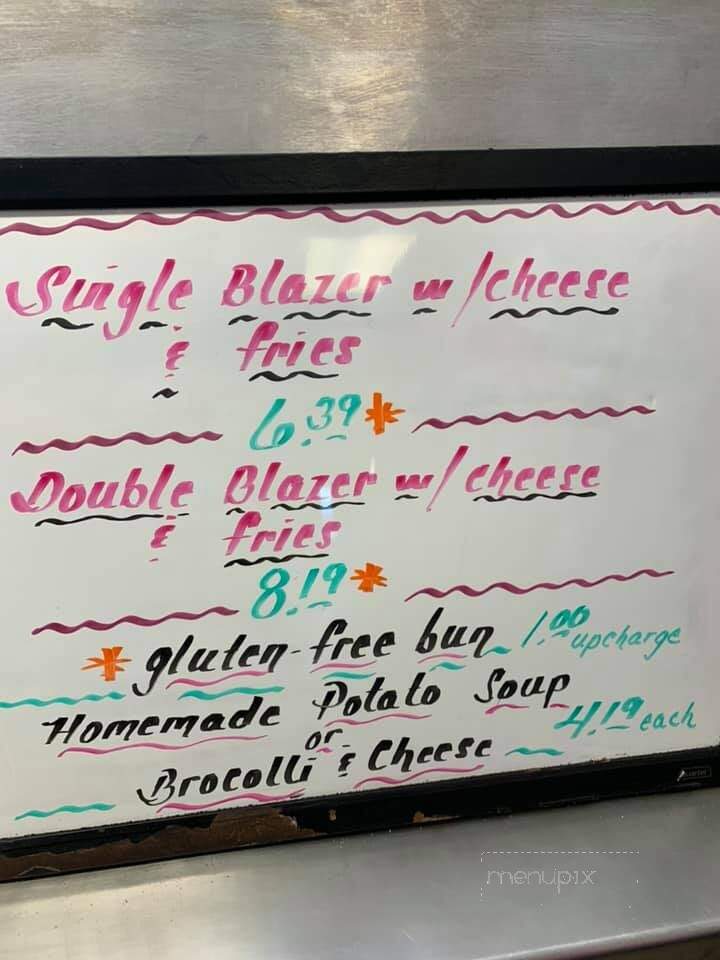 Single Blazer w/cheese
& fries
6.39*
Double Blazer w/cheese
& fries
8.19*
* gluten-free bun 1.00 upcharge
Homemade Potato Soup
or
Brocolli & Cheese 4.19 each
menupix